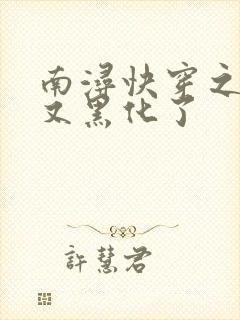 南潯快穿之
又黑化了
許慧君